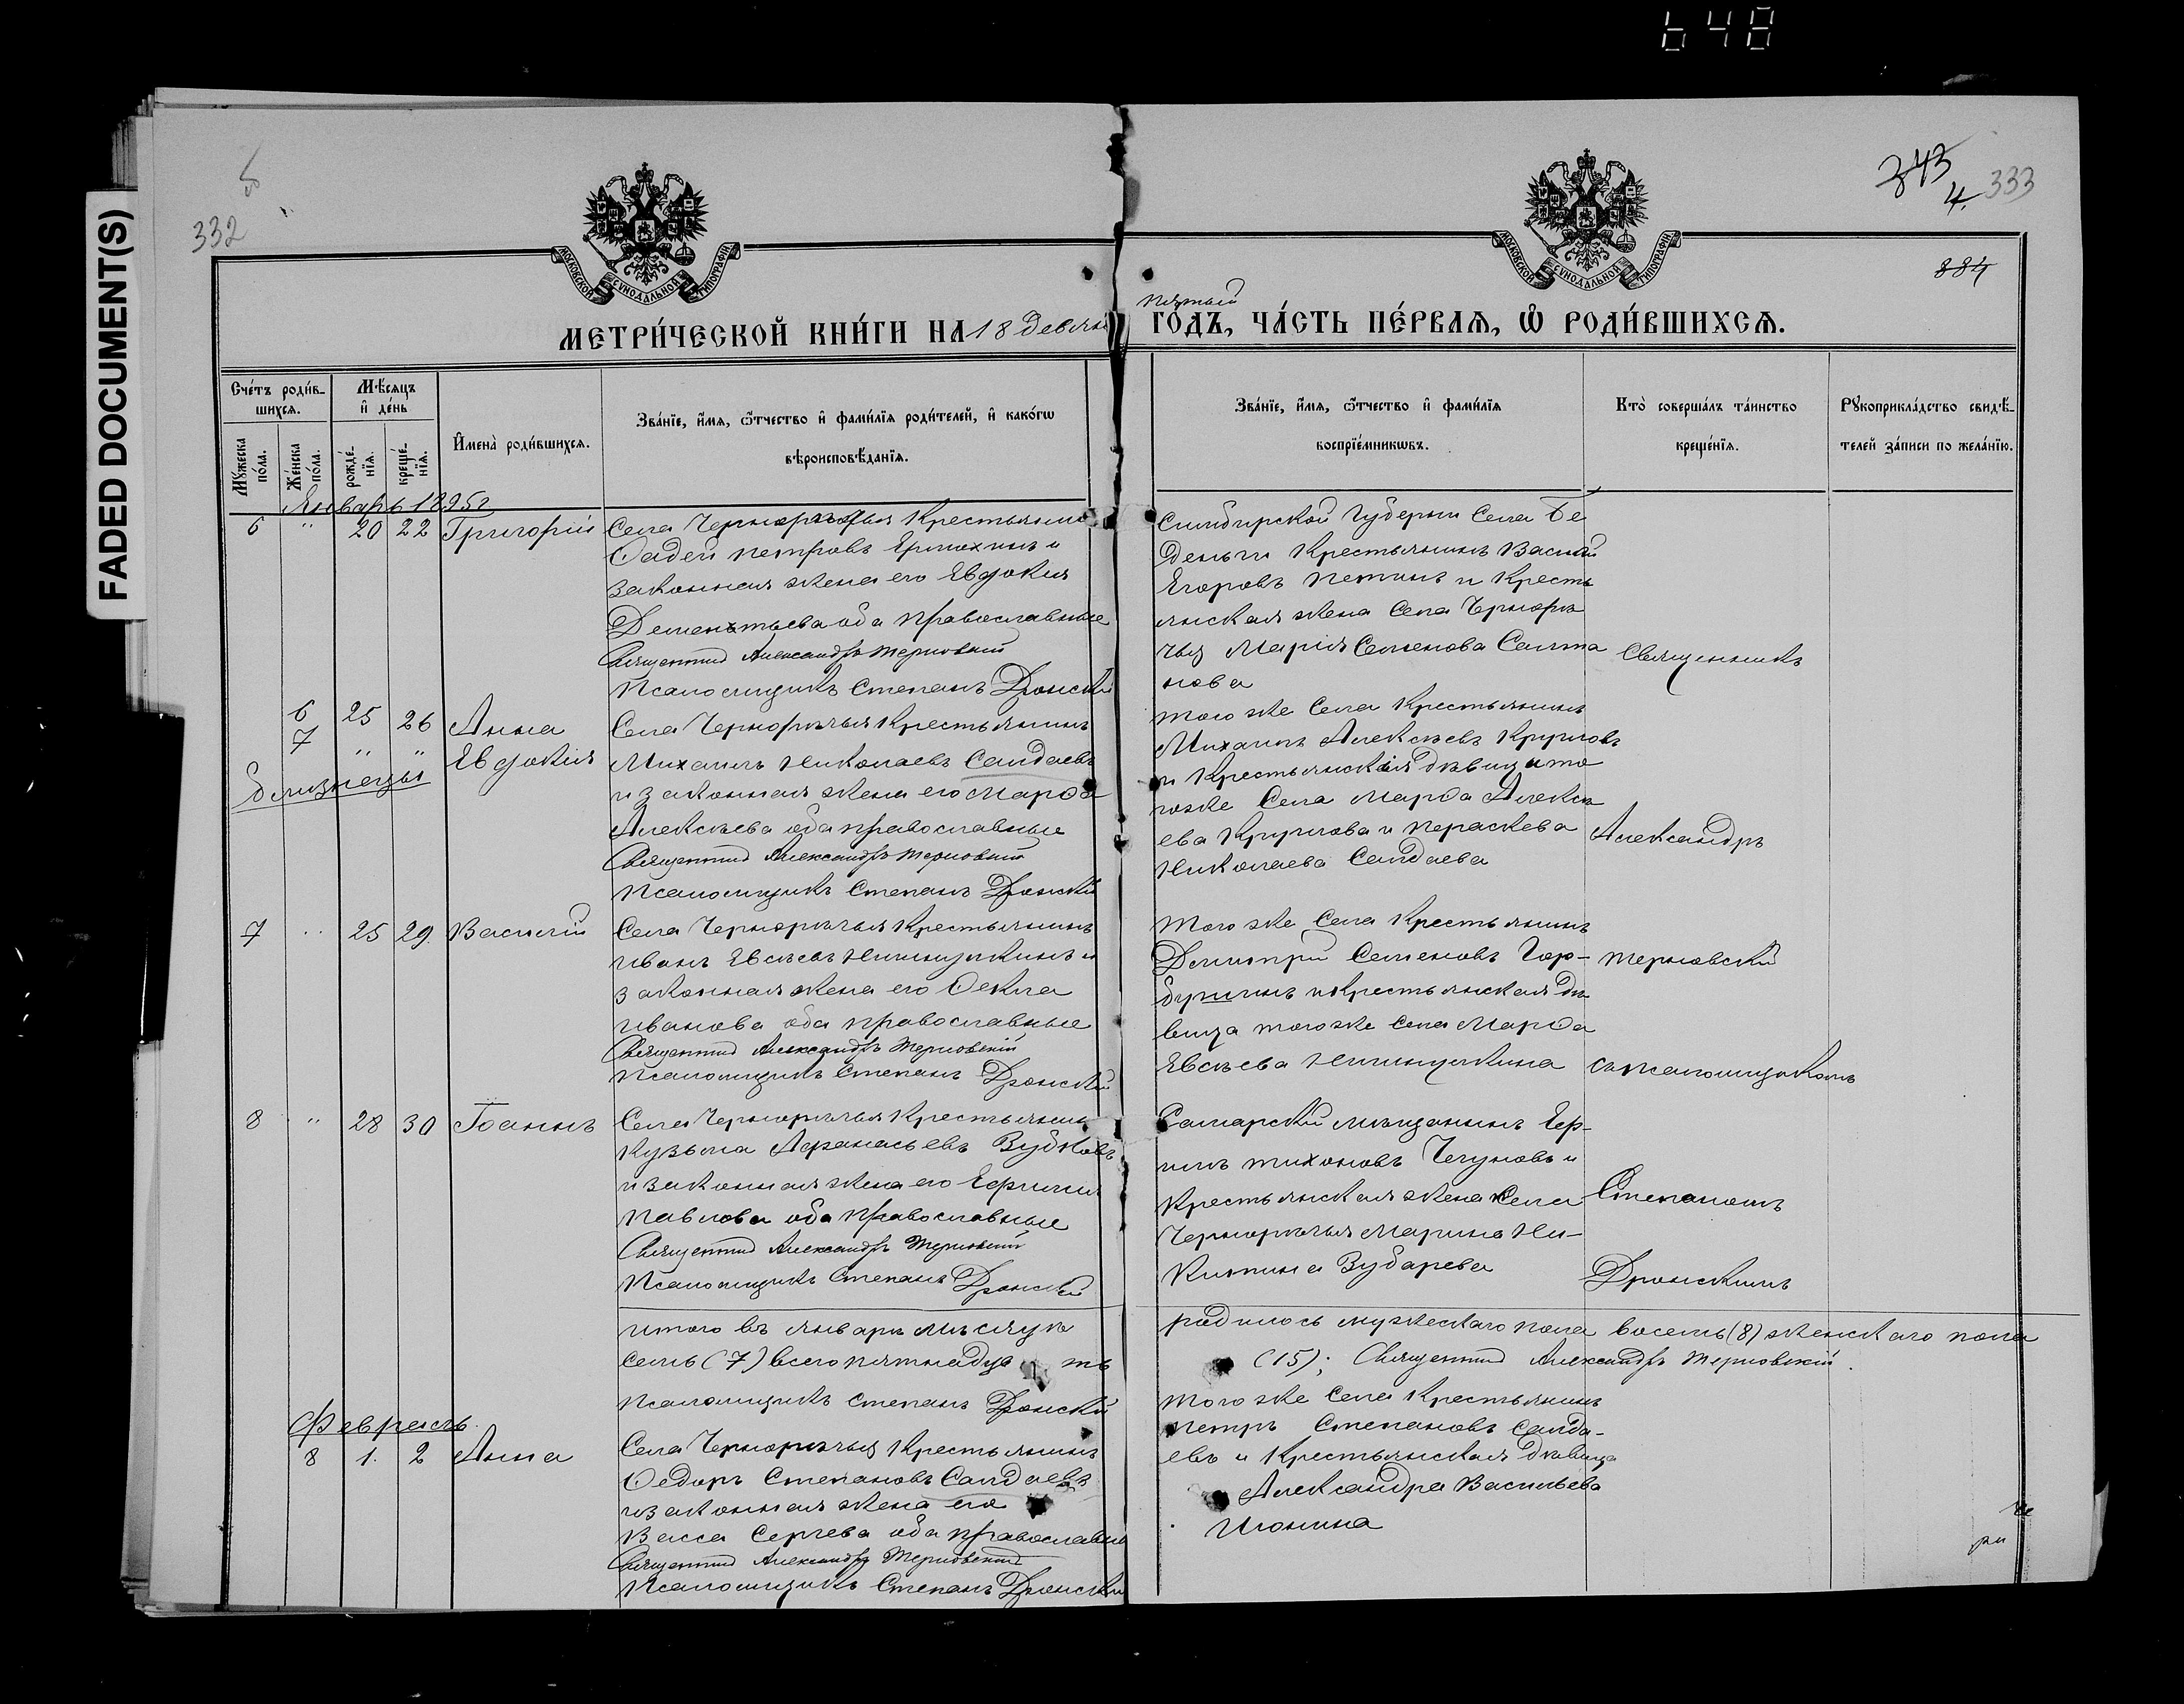 648
FADED DOCUMENT(S)
332
343
4.
333
884
МОСКОВСКОЙ СѴНОДАЛЬНОЙ ТИПОГРАФІИ
МОСКОВСКОЙ СѴНОДАЛЬНОЙ ТИПОГРАФІИ
МЕТРИ́ЧЕСКОЙ КНИ́ГИ НА 18 девяно
пятый
ГО́ДЪ, ЧА́СТЬ ПЕ́РВАѦ, Ѡ҆ РОДИ́ВШИХСѦ.
Сче́тъ роди́в-
шихсѧ.
Мѣ́сѧцъ
и҆ де́нь
Мꙋ́жеска
по́ла.
Же́нска
по́ла.
рожде́-
нїѧ.
креще́-
нїѧ.
И҆мена̀ роди́вшихсѧ.
Зва́нїе, и҆́мѧ, ѻ҆́тчество и҆ фами́лїѧ роди́телей, и҆ како́гѡ
вѣроисповѣ́данїѧ.
Зва́нїе, и҆́мѧ, ѻ҆́тчество и҆ фами́лїѧ
воспрїе́мникѡвъ.
Кто̀ соверша́лъ та́инство
креще́нїѧ.
Рꙋкоприкла́дство свидѣ́-
телей за́писи по жела́нїю.
Январь 1895г
6 " 20 22 Григорій
Села Чернорѣчья Крестьянинъ
Ѳадей Петровъ Ермохинъ и
законная жена его Евдокія
Дементьева оба православные
Священникъ Александръ Терновскій
Псаломщикъ Степанъ Дронскій
Симбирской Губерніи Села Бе
деньги Крестьянинъ Василій
Егоровъ Петинъ и Кресть
янская жена Села Чернорѣ
чья Марія Семенова Салта
нова
Священникъ
6 25 26 Анна
7 " " Евдокія
близнецы
Села Чернорѣчья Крестьянинъ
Михаилъ Николаевъ Саидаевъ
и законная жена его Марѳа
Алексѣева оба православные
Священникъ Александръ Терновскій
Псаломщикъ Степанъ Дронскій
того же Села Крестьянинъ
Михаилъ Алексѣевъ Кругловъ
и Крестьянскія дѣвицы то
гоже Села Марѳа Алексѣ
ева Круглова и Параскева
Николаева Саидаева
Александръ
7 " 25 29 Василій
Села Чернорѣчья Крестьянинъ
Иванъ Евсѣевъ Нишушкинъ и
законная жена его Ѳекла
Иванова оба православные
Священникъ Александръ Терновскій
Псаломщикъ Степанъ Дронскій
Того же Села Крестьянинъ
Димитрій Семеновъ Гор-
бунинъ и Крестьянская дѣ
вица тогоже Села Марѳа
Евсѣева Нишушкина
Терновскій
съ псаломщикомъ
8 " 28 30 Іоаннъ
Села Чернорѣчья Крестьянинъ
Кузьма Афанасьевъ Зубковъ
и законная жена его Ефимія
Павлова оба православные
Священникъ Александръ Терновскій
Псаломщикъ Степанъ Дронскій
Самарскій мѣщанинъ Ер-
милъ Тихоновъ Чегуновъ и
крестьянская жена Села
Чернорѣчья Марина Ни-
китина Зубарева
Степаномъ
Дронскимъ
итого въ январѣ мѣсяцѣ
родилось мужескаго пола восемь (8) женскаго пола
семь (7) всего пятнадца ть
(15); Священникъ Александръ Терновскій.
Псаломщикъ Степанъ Дронскій
Февраль.
8 1. 2 Анна
Села Чернорѣчья Крестьянинъ
Ѳедоръ Степановъ Саидаевъ
и законная жена его
Васса Сергѣева оба православные
Священникъ Александръ Терновскій
Псаломщикъ Степанъ Дронскій
того же Села Крестьянинъ
Петръ Степановъ Саида-
евъ и Крестьянская дѣвица
Александра Васильева
Июнина